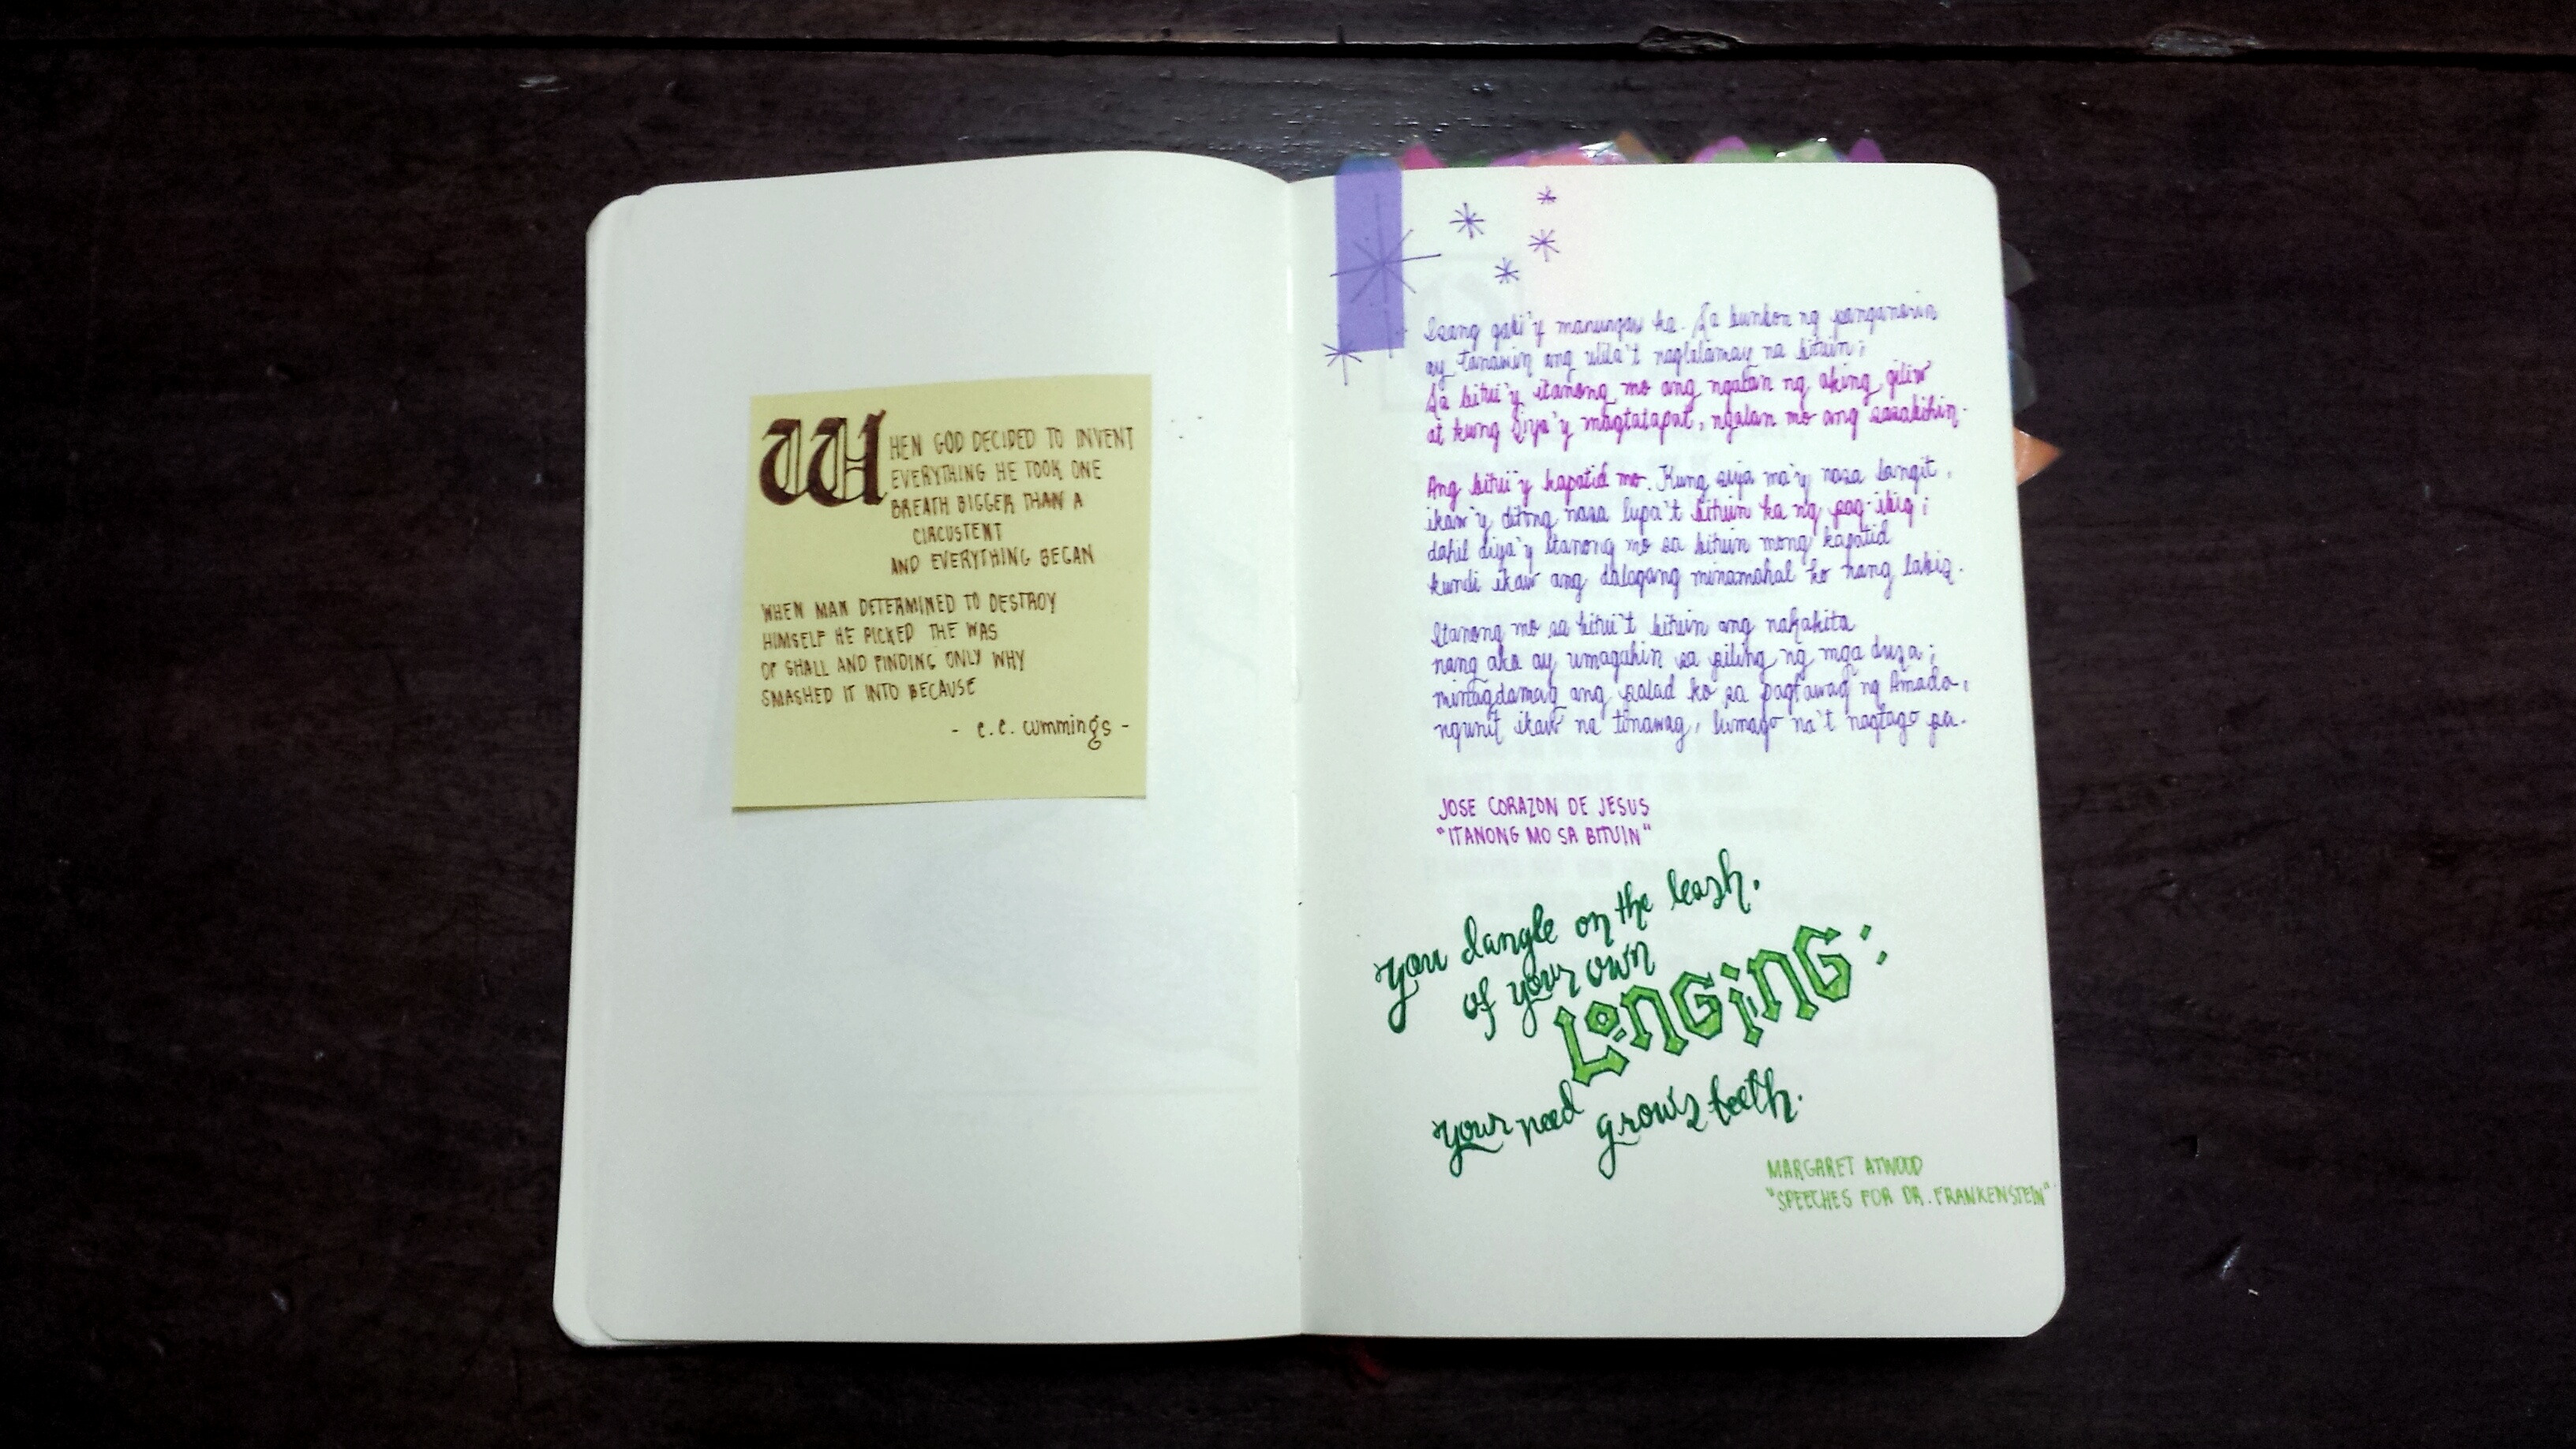 WHEN GOD DECIDED TO INVENT
EVERYTHING HE TOOK ONE
BREATH BIGGER THAN A
CIRCUSTENT
AND EVERYTHING BEGAN
WHEN MAN DETERMINED TO DESTROY
HIMSELF HE PICKED THE WAS
OF SHALL AND FINDING ONLY WHY
SMASHED IT INTO BECAUSE
- e.e. cummings -
Isang gabi'y manungaw ka. Sa bunton ng panganorin
ay tanawin ang ulila't naglalamay na bituin;
Sa bitui'y itanong mo ang ngalan ng aking giliw
at kung siya'y magtatapat, ngalan mo ang sasabihin.
Ang bitui'y kapatid mo. Kung siya ma'y nasa langit,
ikaw'y ditong nasa lupa't bituin ka ng pag-ibig;
dahil diya'y itanong mo sa bituin mong kapatid
kundi ikaw ang dalagang minamahal ko nang labis.
Itanong mo sa bitui't bituin ang nakakita
nang ako ay umagahin sa piling ng mga dusa;
minagdamag ang palad ko sa pagtawag ng Amada,
ngunit ikaw na tinawag, lumayo na't nagtago pa.
JOSE CORAZON DE JESUS
"ITANONG MO SA BITUIN"
you dangle on the leash.
of your own
LONGING;
your need grows teeth.
MARGARET ATWOOD
"SPEECHES FOR DR. FRANKENSTEIN"